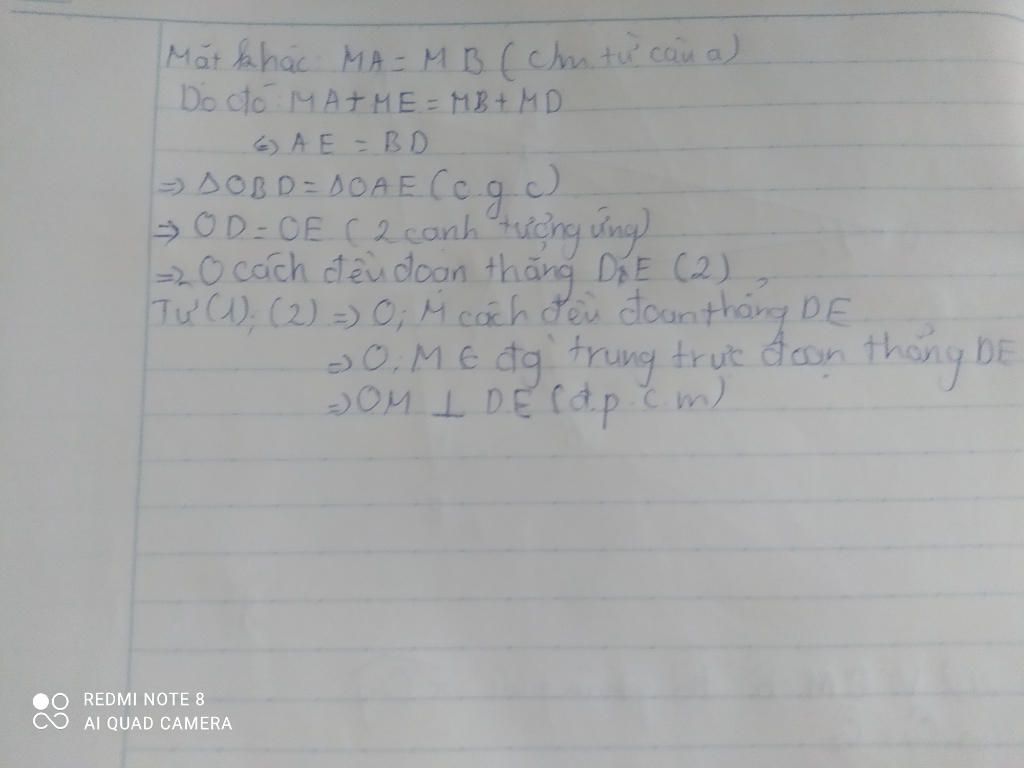 Mặt khác: MA = MB (chm từ câu a)
Do đó: MA + ME = MB + MD
<=> AE = BD
=> ΔOBD = ΔOAE (c.g.c)
=> OD = OE (2 cạnh tương ứng)
=> O cách đều đoạn thẳng DE (2)
Từ (1); (2) => O; M cách đều đoạn thẳng DE
=> O; M ∈ đg trung trực đoạn thẳng DE
=> OM ⊥ DE (đ.p.c.m)
REDMI NOTE 8
AI QUAD CAMERA